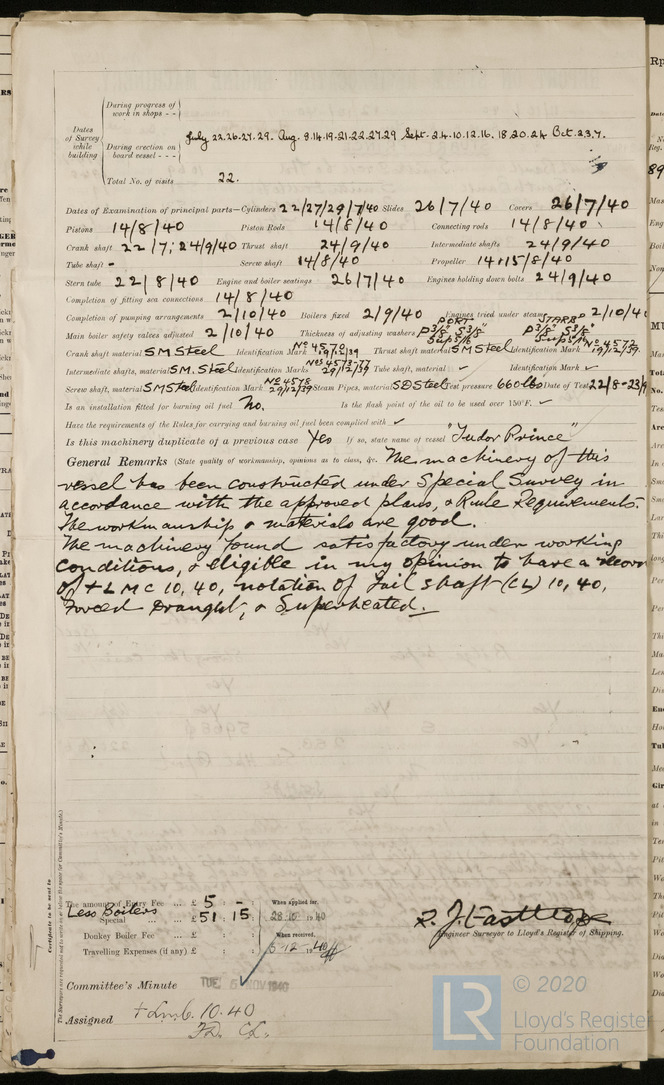 During progress of work in shops - -
Dates of Survey while building
During erection on board vessel - - -
July 22.26.27.29. Aug. 9.14.19.21.22.27.29 Sept. 2.4.10.12.16. 18.20.24 Oct. 2.3.7.
Total No. of visits 22.
Dates of Examination of principal parts—Cylinders 22/27/29/7/40 Slides 26/7/40 Covers 26/7/40
Pistons 14/8/40 Piston Rods 14/8/40 Connecting rods 14/8/40
Crank shaft 22/7; 24/9/40 Thrust shaft 24/9/40 Intermediate shafts 24/9/40
Tube shaft - Screw shaft 14/8/40 Propeller 14+15/8/40
Stern tube 22/8/40 Engine and boiler seatings 26/7/40 Engines holding down bolts 24/9/40
Completion of fitting sea connections 14/8/40
Completion of pumping arrangements 2/10/40 Boilers fixed 2/9/40 Engines tried under steam 2/10/40
Main boiler safety valves adjusted 2/10/40 Thickness of adjusting washers PORT P3/8" S3/8" Sup 5/16" STARBD P3/8" S3/8" Sup 5/16"
Crank shaft material S M Steel Identification Mark No 4570 19/12/39 Thrust shaft material S M Steel Identification Mark No 4573 19/12/39.
Intermediate shafts, material S.M. Steel Identification Marks Nos 4575-77 29/12/39 Tube shaft, material ✓ Identification Mark ✓
Screw shaft, material S M Steel Identification Mark No 4578 29/12/39 Steam Pipes, material S D Steel Test pressure 660 lbs Date of Test 22/8-23/9
Is an installation fitted for burning oil fuel No. Is the flash point of the oil to be used over 150°F. ✓
Have the requirements of the Rules for carrying and burning oil fuel been complied with ✓
Is this machinery duplicate of a previous case Yes If so, state name of vessel "Tudor Prince"
General Remarks (State quality of workmanship, opinions as to class, &c. The machinery of this
vessel has been constructed under Special Survey in
accordance with the approved plans, & Rule Requirements.
The workmanship & materials are good.
The machinery found satisfactory under working
conditions, & eligible in my opinion to have a record
of + L M C 10, 40, notation of Tail Shaft (CL) 10, 40,
Forced Draught, & Superheated.
Certificate to be sent to
The amount of Entry Fee ... £ 5 : - : When applied for,
Less Boilers
Special ... £ 51 : 15 : 28.10 19 40
Donkey Boiler Fee ... £ : : When received,
Travelling Expenses (if any) £ : : 6.12 19 40
R. J. Easthope
Engineer Surveyor to Lloyd's Register of Shipping.
Committee's Minute TUE 5 NOV 1940
Assigned + Lmb. 10.40
FD. CL.
LR © 2020
Lloyd's Register
Foundation